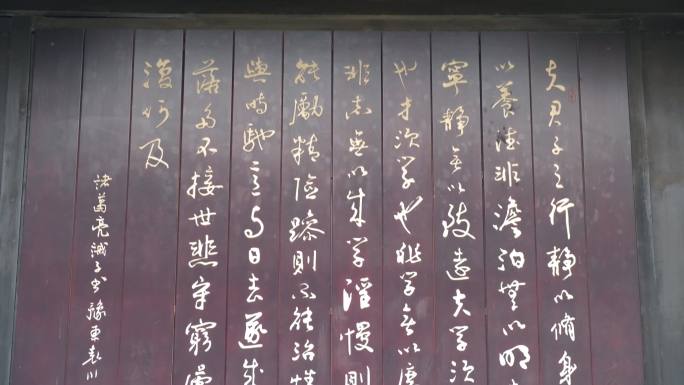 夫君子之行靜以脩身
以養德非澹泊無以明
寧靜無以致遠夫學須
也才須學也非學無以廣
非志無以成學淫慢則
能勵精險躁則不能治性
與時馳意与日去遂成
落多不接世悲守窮廬
復何及
諸葛亮誡子書 豫東